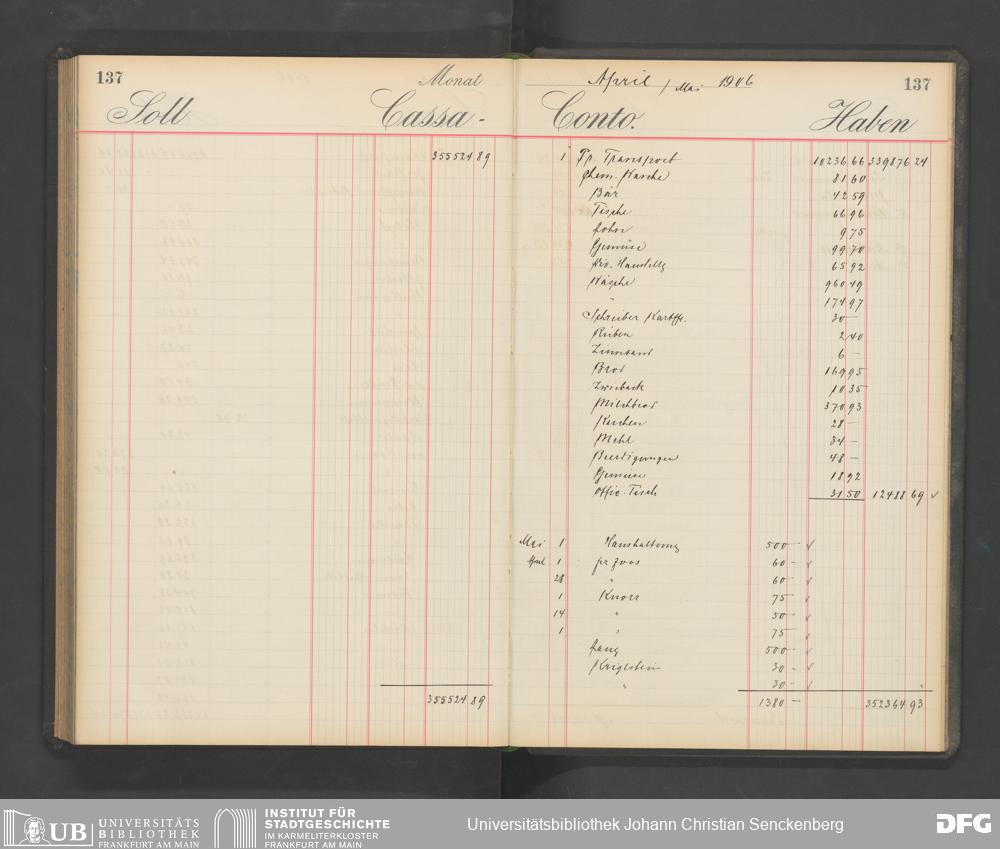 137
Monat
Soll
Cassa-
355524 89
355524 89
April / Mai 1906
137
Conto.
Haben
1 Pr. Transport 10236 66 339876 24
chem. Wäsche 81 60
Bär 42 59
Tische 66 96
Lohn 9 75
Gemüse 99 70
div. Haushltg. 65 92
Wäsche 960 49
" 174 97
Schreiber Kartffl. 30 —
Rüben 2 40
6 —
Brod 169 95
Zwieback 10 35
Milchbrod 370 93
Kuchen 28 —
Mehl 34 —
Beerdigungen 48 —
Gemüse 18 92
Offic. Tisch 31 50 12488 69 ✓
Mai 1 Haushaltung 500 — ✓
April 1 60 — ✓
28 " 60 — ✓
1 Knorr 75 ✓
14 " 50 — ✓
1 " 75 ✓
Lang 500 — ✓
Kriglstein 30 - ✓
" 30 - ✓
1380 — 352364 93
UB UNIVERSITÄTS
BIBLIOTHEK
FRANKFURT AM MAIN
INSTITUT FÜR
STADTGESCHICHTE
IM KARMELITERKLOSTER
FRANKFURT AM MAIN
Universitätsbibliothek Johann Christian Senckenberg
DFG